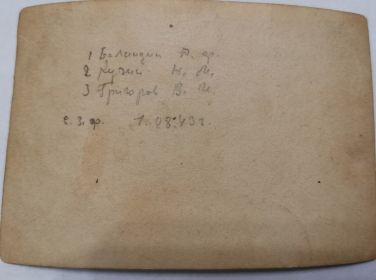 1 Баландин А. ф.
2 Кузин Н. М.
3 Григоров В. И.
с. з. ф. 1.08.43 г.